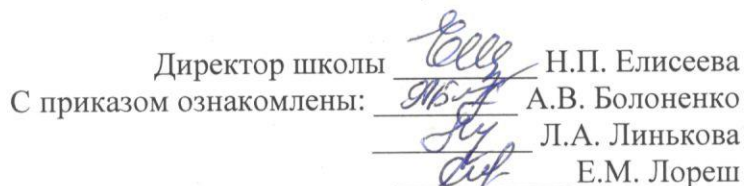 Директор школы Н.П. Елисеева
С приказом ознакомлены: А.В. Болоненко
Л.А. Линькова
Е.М. Лореш